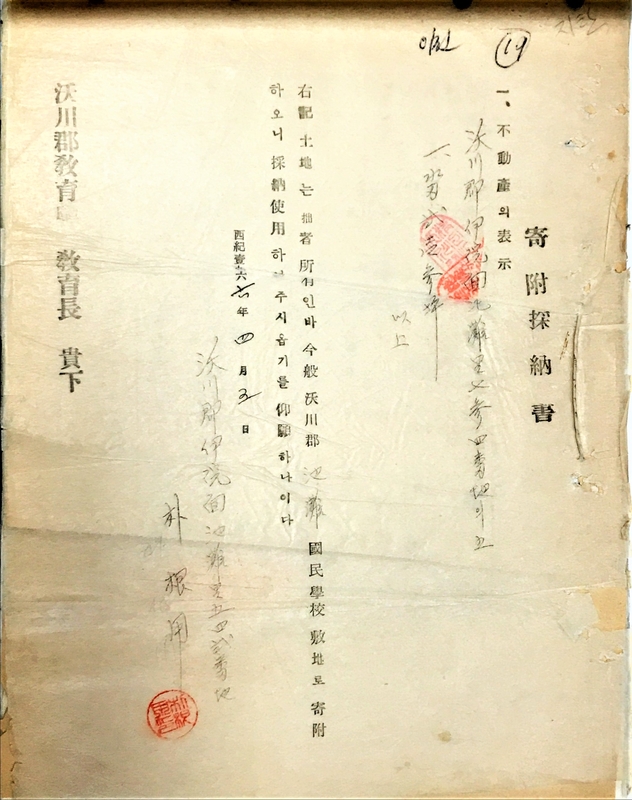 19
寄附採納書
一、不動產의表示
沃川郡伊院面池灘里 參四番地의
以上
右記 土地는 拙者 所有인바 今般 沃川郡 池灘 國民學校 敷地로 寄附
하오니 採納使用 하여 주시옵기를 仰願하나이다
西紀壹 六年 四月 五日
沃川郡伊院面池灘里五四貳番地
朴根用
沃川郡敎育 敎育長 貴下